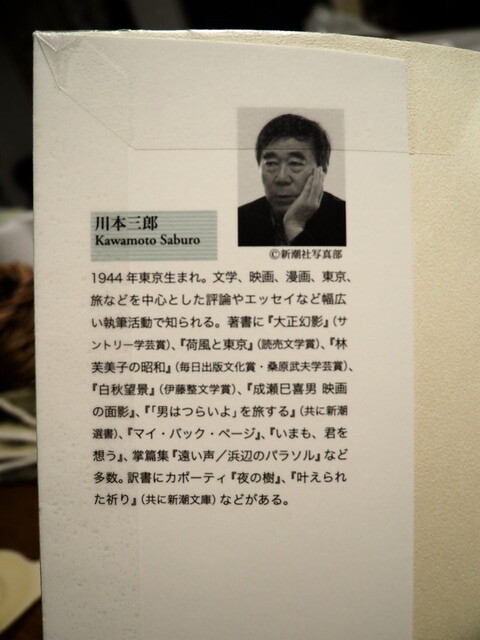 川本三郎
Kawamoto Saburo
©新潮社写真部
1944年東京生まれ。文学、映画、漫画、東京、
旅などを中心とした評論やエッセイなど幅広
い執筆活動で知られる。著書に『大正幻影』（サ
ントリー学芸賞）、『荷風と東京』（読売文学賞）、『林
芙美子の昭和』（毎日出版文化賞・桑原武夫学芸賞）、
『白秋望景』（伊藤整文学賞）、『成瀬巳喜男 映画
の面影』、『「男はつらいよ」を旅する』（共に新潮
選書）、『マイ・バック・ページ』、『いまも、君を
想う』、掌篇集『遠い声／浜辺のパラソル』など
多数。訳書にカポーティ『夜の樹』、『叶えられ
た祈り』（共に新潮文庫）などがある。